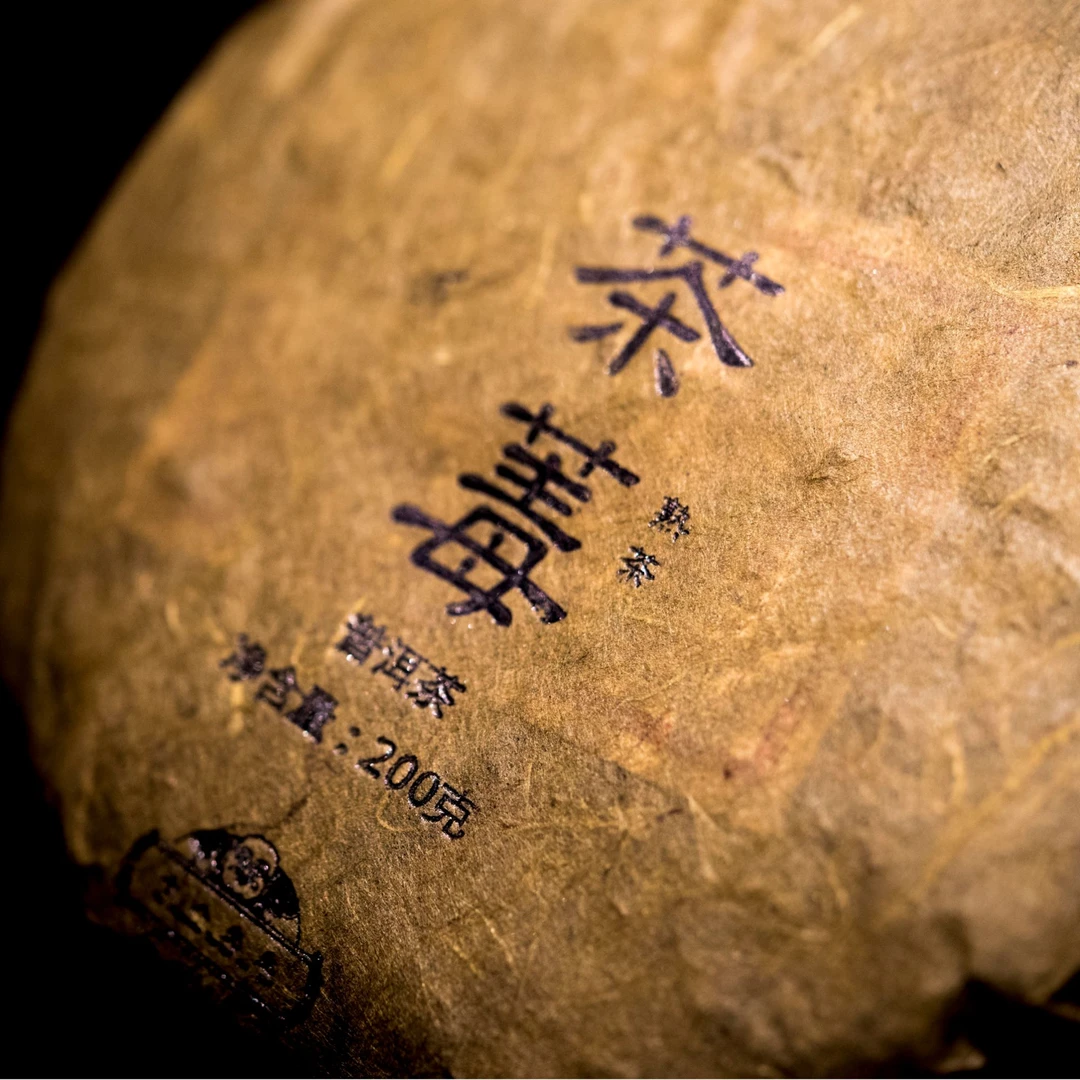 茶
熟茶
普洱茶
净含量:200克